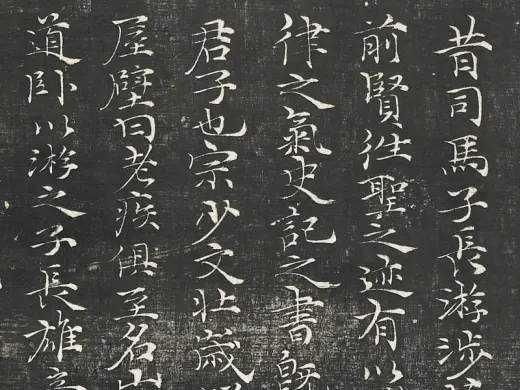 昔司馬子長游涉
前賢往聖之迹有以
律之氣史記之書
君子也宗少文壯歲
屋壁曰老疾俱至名山
道卧以游之子長雄